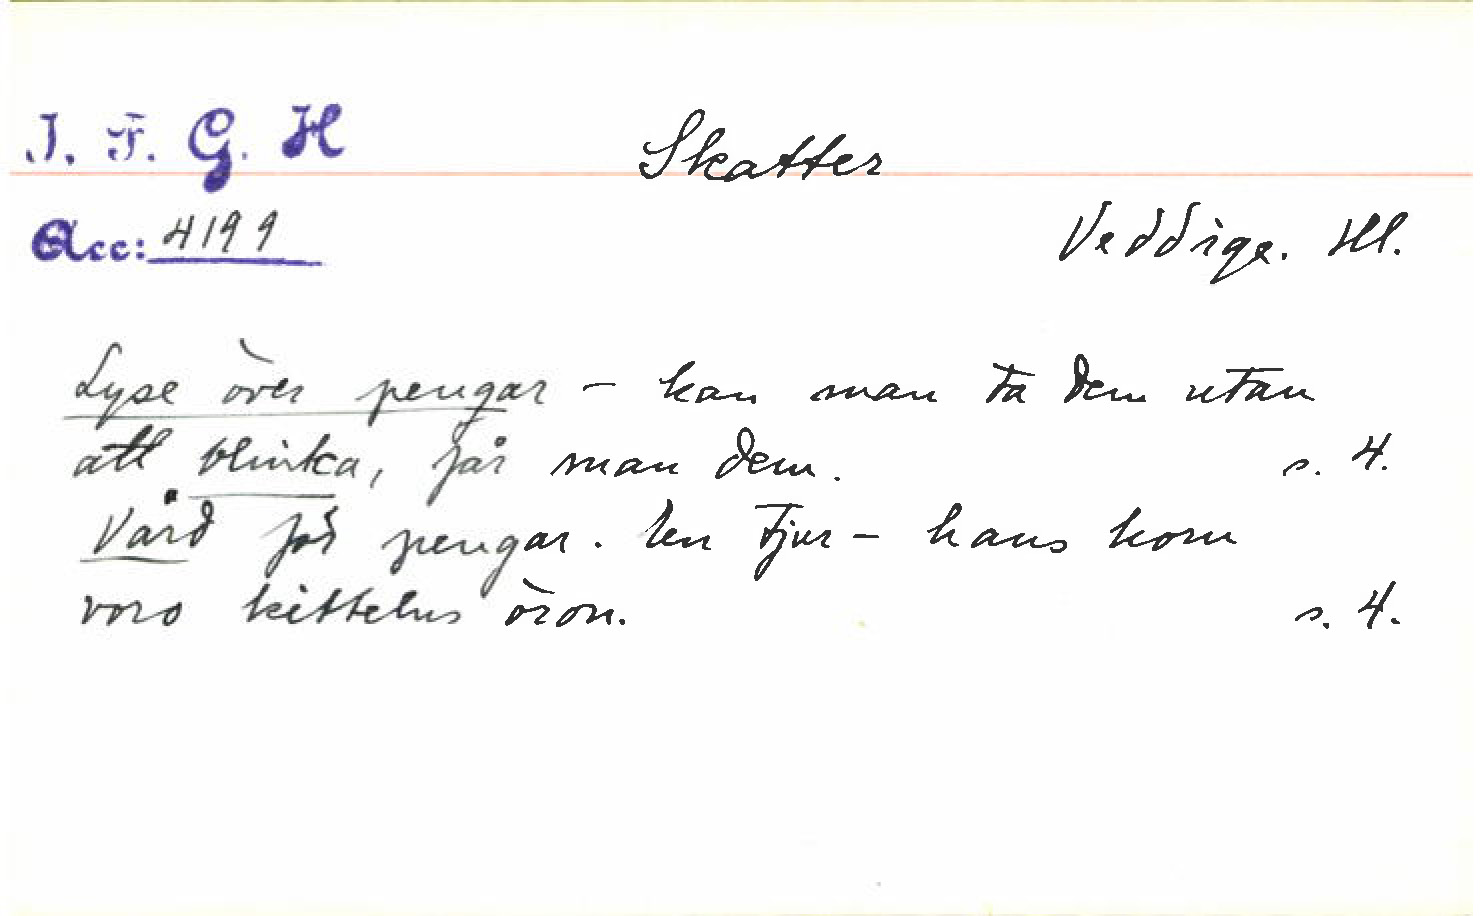 I. F. G. H
Skatter
Acc: 4199
Veddige. Hl.
Lyse över pengar – kan man ta dem utan
att blinka, får man dem. s. 4.
Vård för pengar. En tjur – hans horn
voro kittelns öron. s. 4.